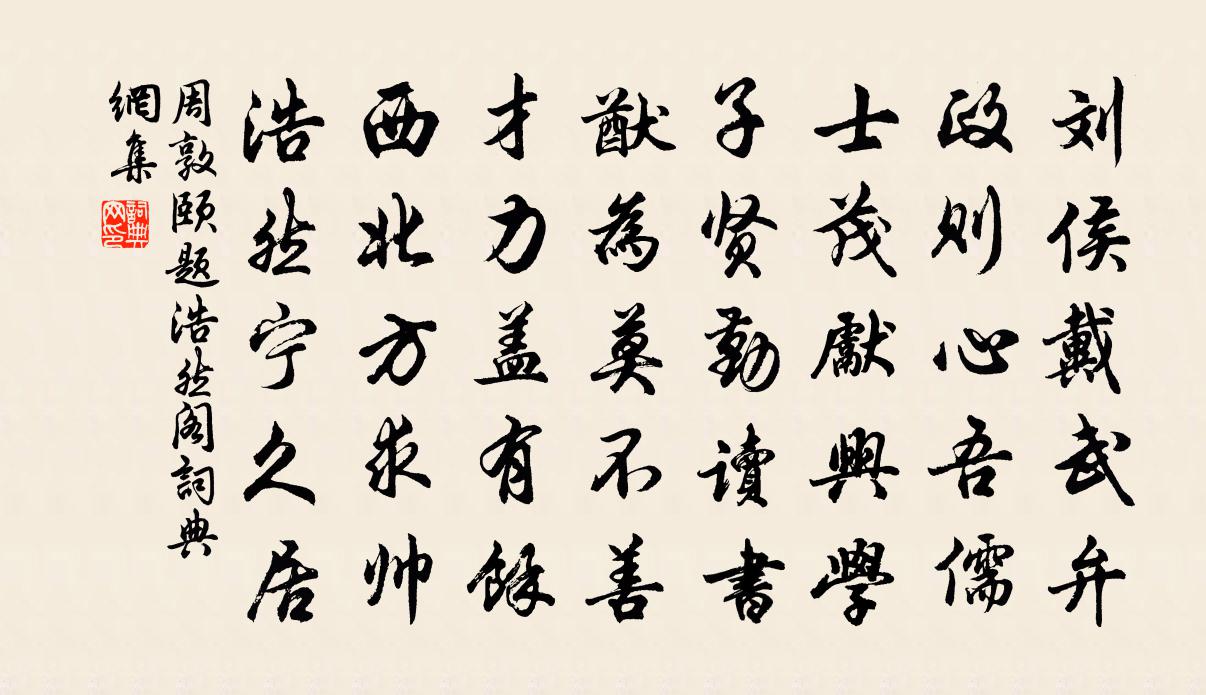 刘侯戴武弁
政则心吾儒
士茂獻興學
子贤勤讀書
猷為莫不善
才力盖有餘
西北方求帅
浩然宁久居
周敦颐题浩然阁詞典
網集
詞典网印